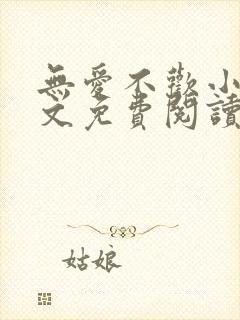 無愛不歡小
文免費閱讀
姑娘